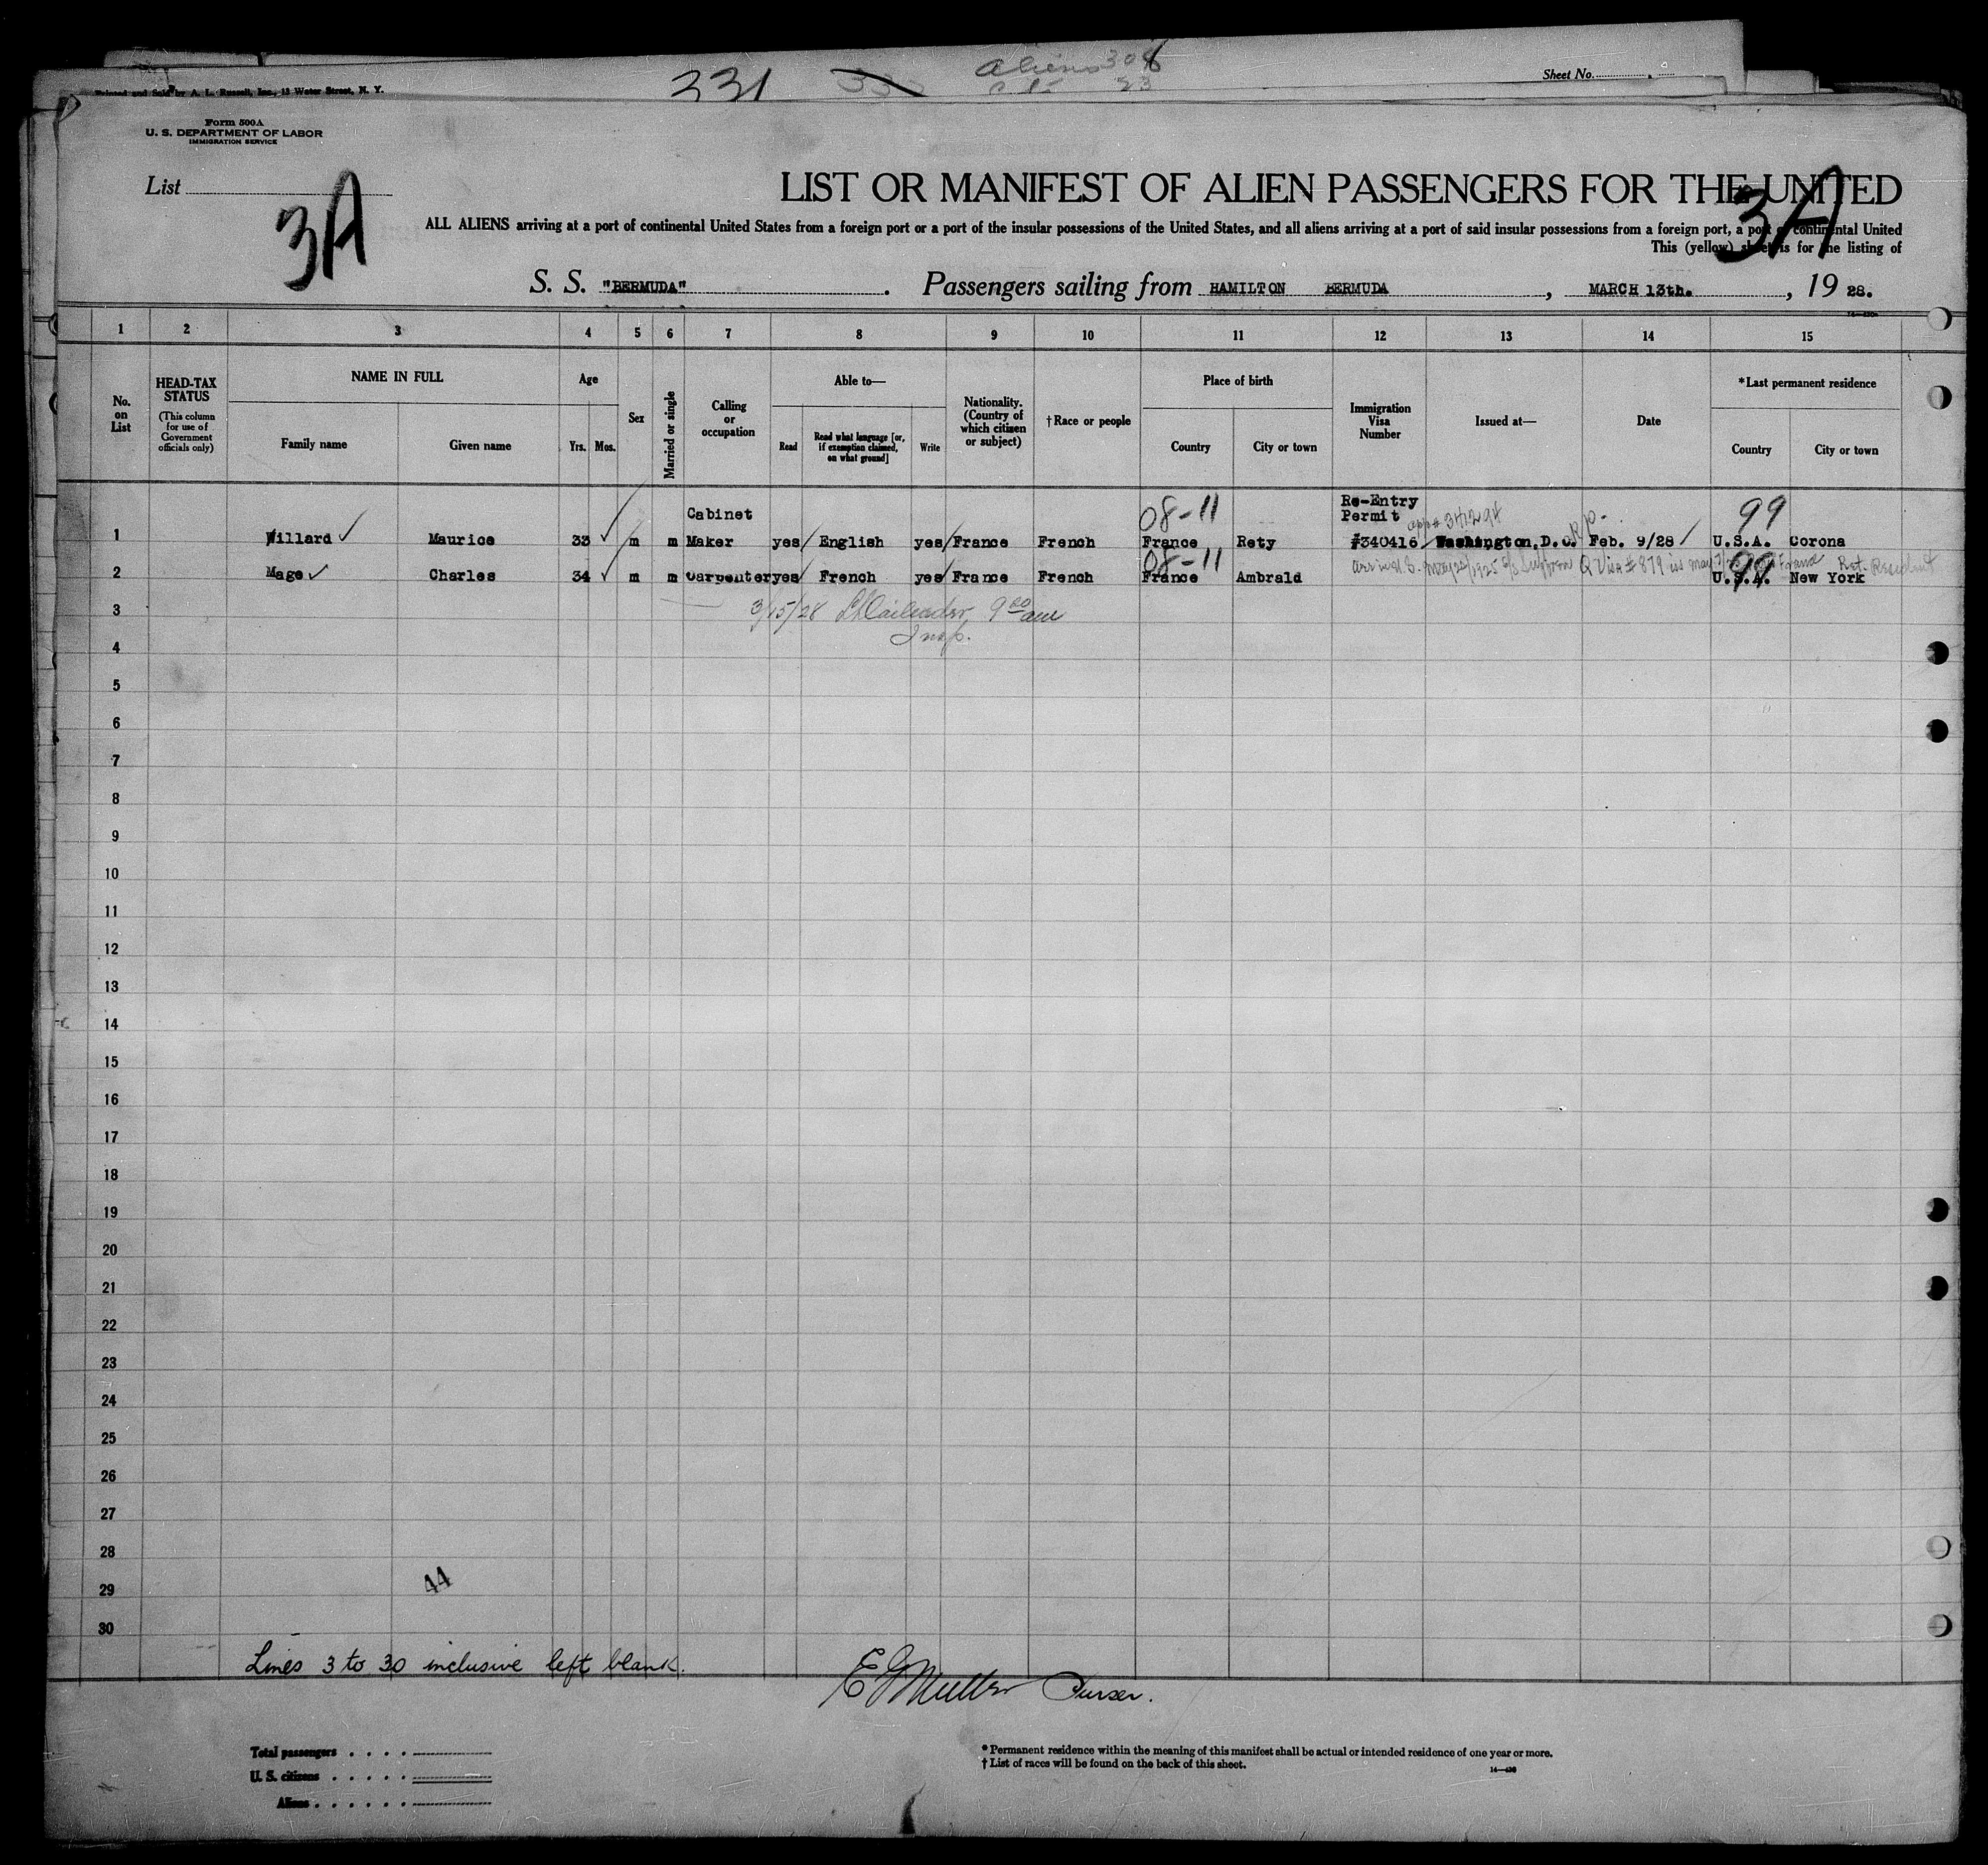 Aliens 308
331
23
Sheet No.
Printed and Sold by A. L. Russell, Inc., 13 Water Street, N. Y.
Form 500A
U. S. DEPARTMENT OF LABOR
IMMIGRATION SERVICE
List
3A
LIST OR MANIFEST OF ALIEN PASSENGERS FOR THE UNITED
3A
ALL ALIENS arriving at a port of continental United States from a foreign port or a port of the insular possessions of the United States, and all aliens arriving at a port of said insular possessions from a foreign port, a port of continental United
This (yellow) sheet is for the listing of
S. S. "BERMUDA". Passengers sailing from HAMILTON BERMUDA, MARCH 13th., 19 28.
1 2 3 4 5 6 7 8 9 10 11 12 13 14 15
No. on List
HEAD-TAX STATUS
(This column for use of Government officials only)
NAME IN FULL
Family name Given name
Age
Yrs. Mos.
Sex
Married or single
Calling or occupation
Able to—
Read Read what language [or, if exemption claimed, on what ground] Write
Nationality. (Country of which citizen or subject)
† Race or people
Place of birth
Country City or town
Immigration Visa Number
Issued at—
Date
* Last permanent residence
Country City or town
Cabinet 08-11 Re-Entry Permit 99
1 Willard Maurice 33 m m Maker yes English yes France French France Rety #340416 Washington, D. C. Feb. 9/28 U.S.A. Corona
08-11 99
2 Mage Charles 34 m m Carpenter yes French yes France French France Ambrald Q Visa # 879 Ret. Resident U.S.A. New York
3 3/15/28 9 00 am
Insp.
4
5
6
7
8
9
10
11
12
13
14
15
16
17
18
19
20
21
22
23
24
25
26
27
28
29 44
30
Lines 3 to 30 inclusive left blank.
E G Muller Purser.
Total passengers
U. S. citizens
Aliens
* Permanent residence within the meaning of this manifest shall be actual or intended residence of one year or more.
† List of races will be found on the back of this sheet.
14—430